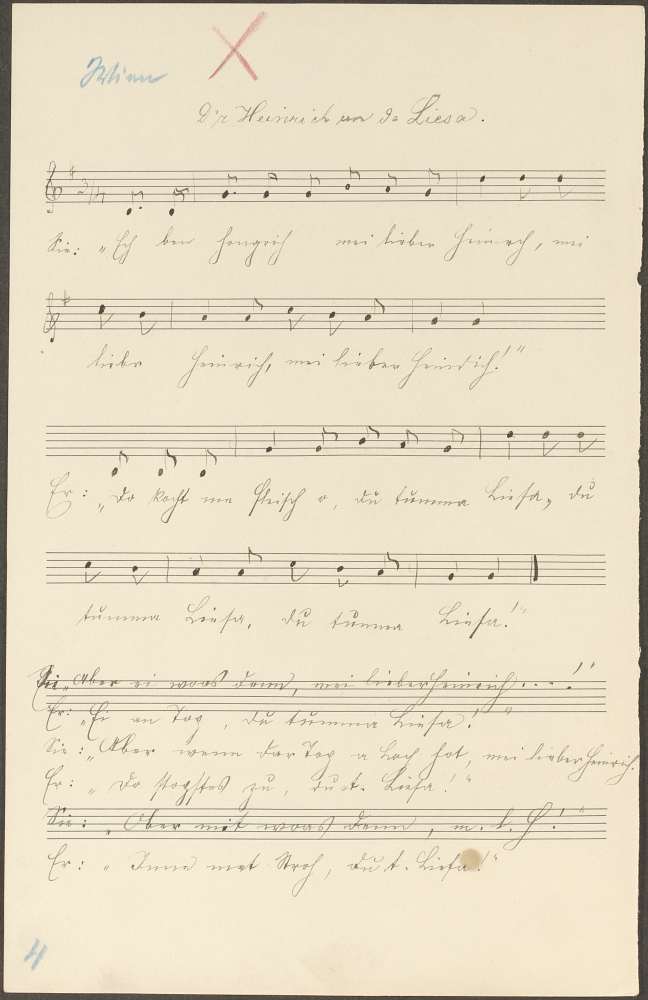 Wien
D'r Heinrich un de Liesa.
Sie: „Ich ben hongrich mei lieber Heinrich, mei
lieber Heinrich, mei lieber Heinrich!“
Er: „Do kocht me Fleisch o, du tumma Liesa, du
tumma Liesa, du tumma Liesa!“
Sie: „Aber ei woos denn, mei lieber Heinrich...!“
Er: „Ei an Top, du tumma Liesa!“
Sie: „Aber wenn dar Top a Loch hot, mei lieber Heinrich.
Er: „Do stopstes zu, du t. Liesa!“
Sie: „Ober mit woos denn, m. l. H!“
Er: „ met Stroh, du t. Liesa!“
4